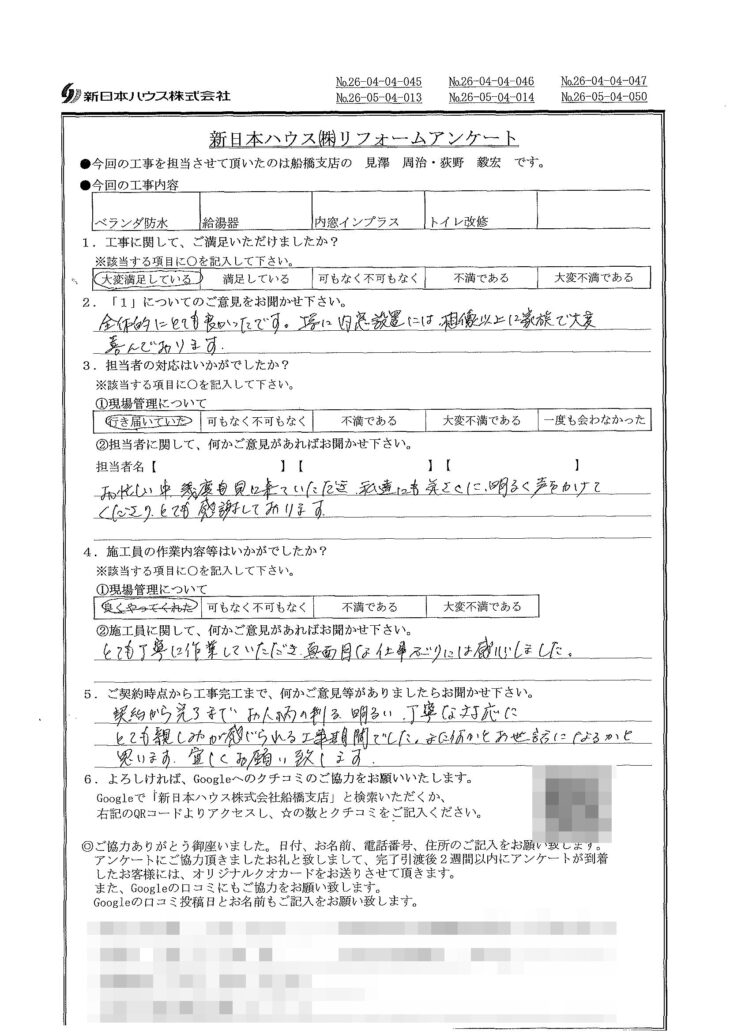 新日本ハウス株式会社
№26-04-04-045 №26-04-04-046 №26-04-04-047
№26-05-04-013 №26-05-04-014 №26-05-04-050
新日本ハウス㈱リフォームアンケート
●今回の工事を担当させて頂いたのは船橋支店の 見澤 周治・荻野 毅宏 です。
●今回の工事内容
ベランダ防水 給湯器 内窓インプラス トイレ改修
1．工事に関して、ご満足いただけましたか？
※該当する項目に○を記入して下さい。
大変満足している 満足している 可もなく不可もなく 不満である 大変不満である
2．「1」についてのご意見をお聞かせ下さい。
全体的にとても良かったです。特に内窓設置には想像以上に家族で大変
喜んでおります。
3．担当者の対応はいかがでしたか？
※該当する項目に○を記入して下さい。
①現場管理について
行き届いていた 可もなく不可もなく 不満である 大変不満である 一度も会わなかった
②担当者に関して、何かご意見があればお聞かせ下さい。
担当者名【 】【 】【 】
お忙しい中幾度も見に来ていただき 私達にも気さくに、明るく声をかけて
くださり、とても感謝しております。
4．施工員の作業内容等はいかがでしたか？
※該当する項目に○を記入して下さい。
①現場管理について
良くやってくれた 可もなく不可もなく 不満である 大変不満である
②施工員に関して、何かご意見があればお聞かせ下さい。
とても丁寧に作業していただき、真面目な仕事ぶりには感心しました。
5．ご契約時点から工事完工まで、何かご意見等がありましたらお聞かせ下さい。
契約から完了まで お人柄の判る 明るい、丁寧な対応に
とても親しみが感じられる工事期間でした。また何かとお世話になるかと
思います。宜しくお願い致します。
6．よろしければ、Googleへのクチコミのご協力をお願いいたします。
Googleで「新日本ハウス株式会社船橋支店」と検索いただくか、
右記のQRコードよりアクセスし、☆の数とクチコミをご記入ください。
◎ご協力ありがとう御座いました。日付、お名前、電話番号、住所のご記入をお願い致します。
アンケートにご協力頂きましたお礼と致しまして、完了引渡後２週間以内にアンケートが到着
したお客様には、オリジナルクオカードをお送りさせて頂きます。
また、Googleの口コミにもご協力をお願い致します。
Googleの口コミ投稿日とお名前もご記入をお願い致します。